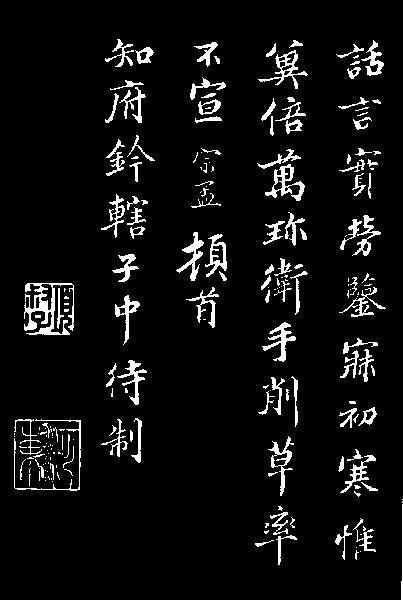 話言實勞鑒寐初寒惟
冀倍萬珎衛手削草率
不宣宗孟頓首
知府鈐轄子中待制
項叔子